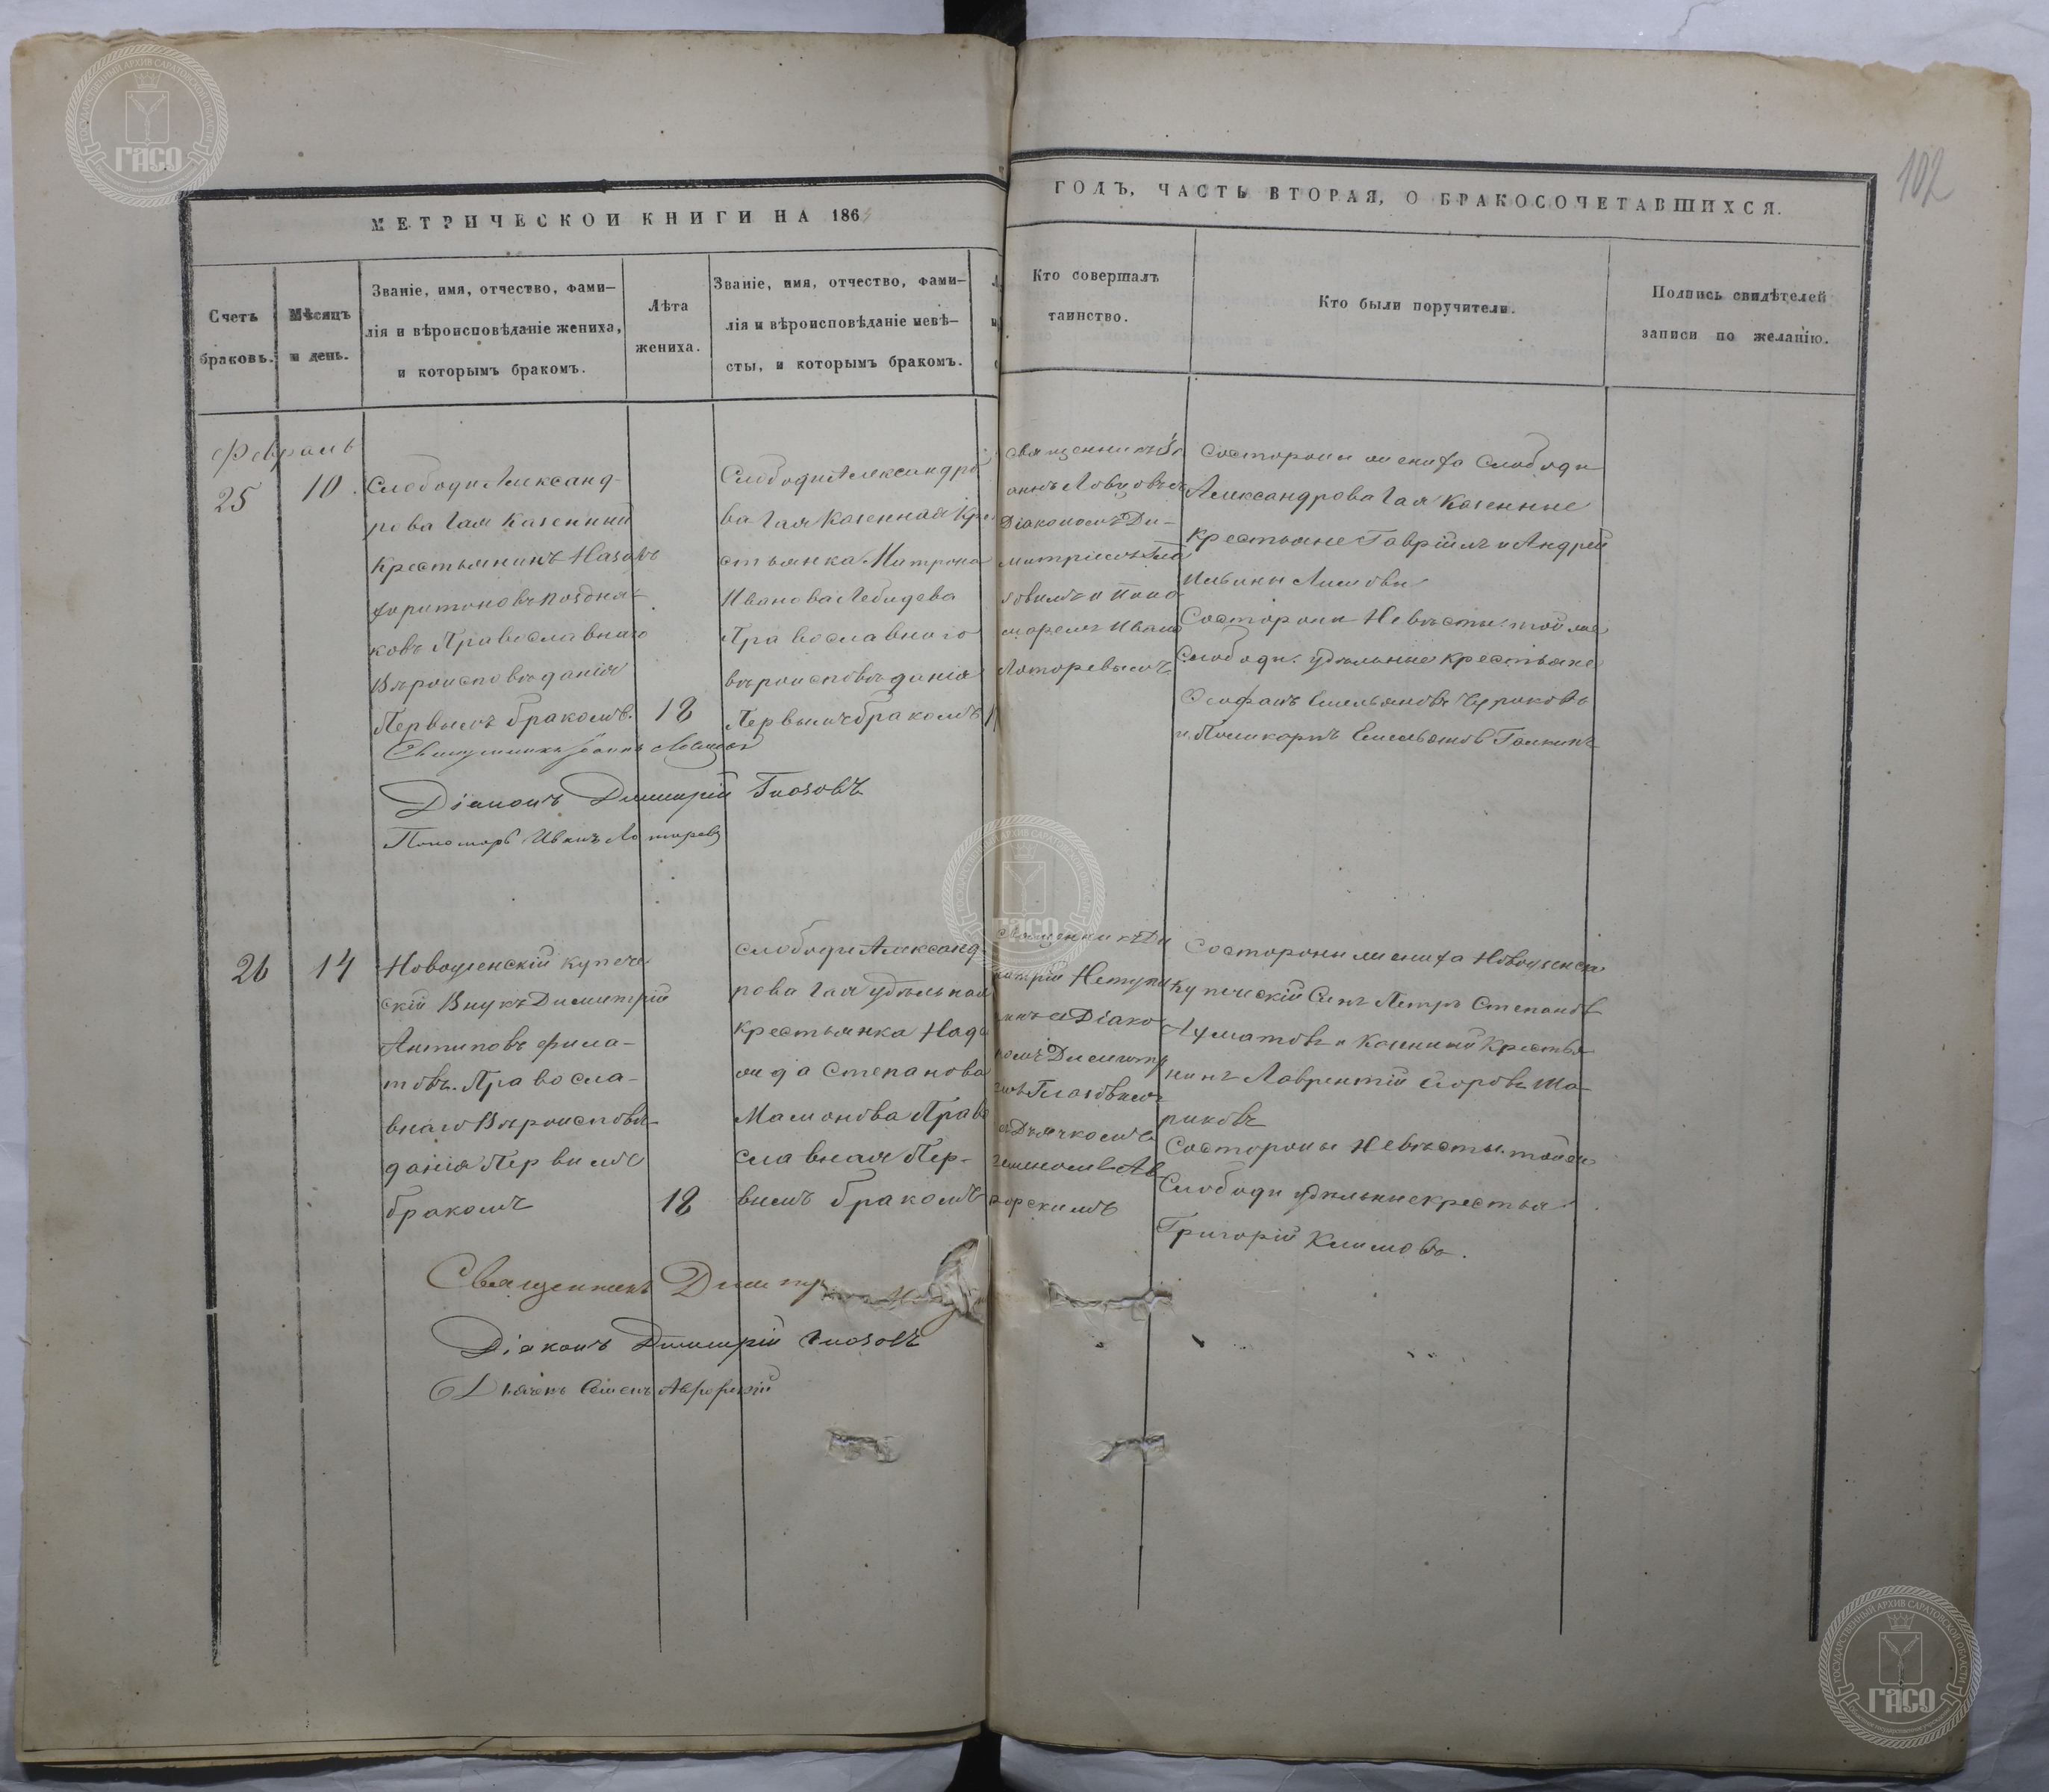 102
МЕТРИЧЕСКОЙ КНИГИ НА 186
ГОДЪ, ЧАСТЬ ВТОРАЯ, О БРАКОСОЧЕТАВШИХСЯ.
Счетъ
браковъ.
Мѣсяцъ
и день.
Званіе, имя, отчество, фами-
лія и вѣроисповѣданіе жениха,
и которымъ бракомъ.
Лѣта
жениха.
Званіе, имя, отчество, фами-
лія и вѣроисповѣданіе невѣ-
сты, и которымъ бракомъ.
Кто совершалъ
таинство.
Кто были поручители.
Подпись свидѣтелей
записи по желанію.
Февраль
25
10.
Слободы Александ-
рова Гая Казенный
Крестьянинъ Назаръ
Харитоновъ Поздня-
ковъ Православнаго
Вѣроисповѣданія
Первымъ бракомъ.
18
Слободы Александро
ва Гая Казенная Кре
стьянка Матрона
Иванова Лебидева
Православного
вѣроисповѣданія
Первымъ бракомъ
Священникъ Іо
аннъ Ловцовъ съ
Діакономъ Ди-
митріемъ Гла
зовымъ и Поно
маремъ Иваном
Лоторевымъ
Состороны жениха Слободы
Александрова Гая Казенные
Крестьяне Гавріилъ и Андрей
Ильины
Состороны Невѣсты. той же
Слободы. удѣльные крестьяне
Феофанъ Емельяновъ Чуриковъ
и Поликарпъ Емельянов Галкинъ
Священникъ Іоаннъ Ловцовъ
Діаконъ Димитрій Глазовъ
Пономарь Иванъ Лоторевъ
26
14
Новоузенскій купече
скій Внукъ Димитрій
Антиповъ Фила-
товъ. Правосла-
внаго Вѣроисповѣ-
данія Первымъ
бракомъ
18
слободы Александ
рова Гая удѣльная
крестьянка Наде
жда Степанова
Мамонова Право
славная Пер-
вымъ бракомъ
Священникъ Ди
митрій
съ Діако
номъ Димитрі
емъ Глазовымъ
и Дьячкомъ
Семеномъ Ав
рорскимъ
Состороны жениха Новоузенск
купеческій Сынъ Петръ Степановъ
и Казенный Крестья
нинъ Лаврентій Егоровъ Ша-
риковъ
Состороны Невѣсты. той же
Слободы удѣльные крестья
Григорій Климовъ.
Священникъ Димитр
Діаконъ Димитрій Глазовъ
Дьячекъ Семенъ Аврорскій
ГОСУДАРСТВЕННЫЙ АРХИВ САРАТОВСКОЙ ОБЛАСТИ
ГАСО
ГОСУДАРСТВЕННЫЙ АРХИВ САРАТОВСКОЙ ОБЛАСТИ
ГАСО
ГОСУДАРСТВЕННЫЙ АРХИВ САРАТОВСКОЙ ОБЛАСТИ
ГАСО